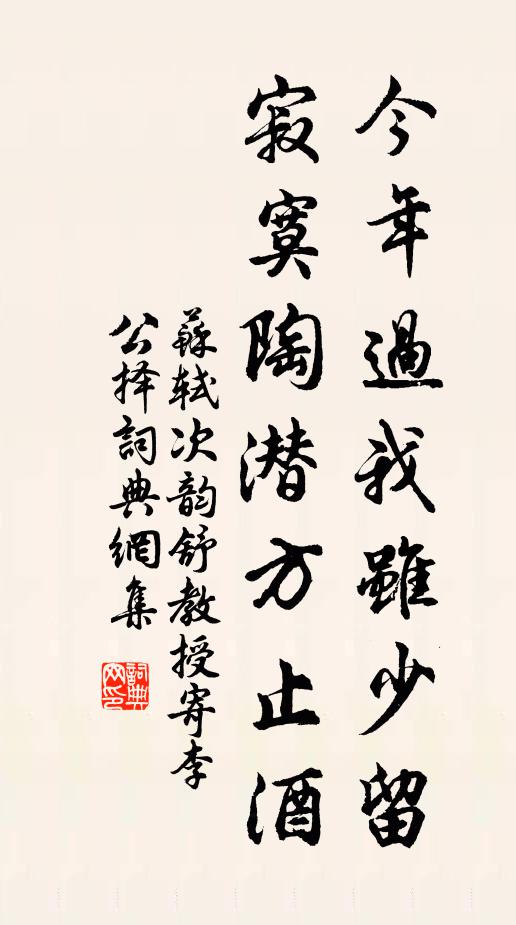 今年過我雖少留
寂寞陶潜方止酒
蘇軾次韵舒教授寄李
公择詞典網集
詞典
网印